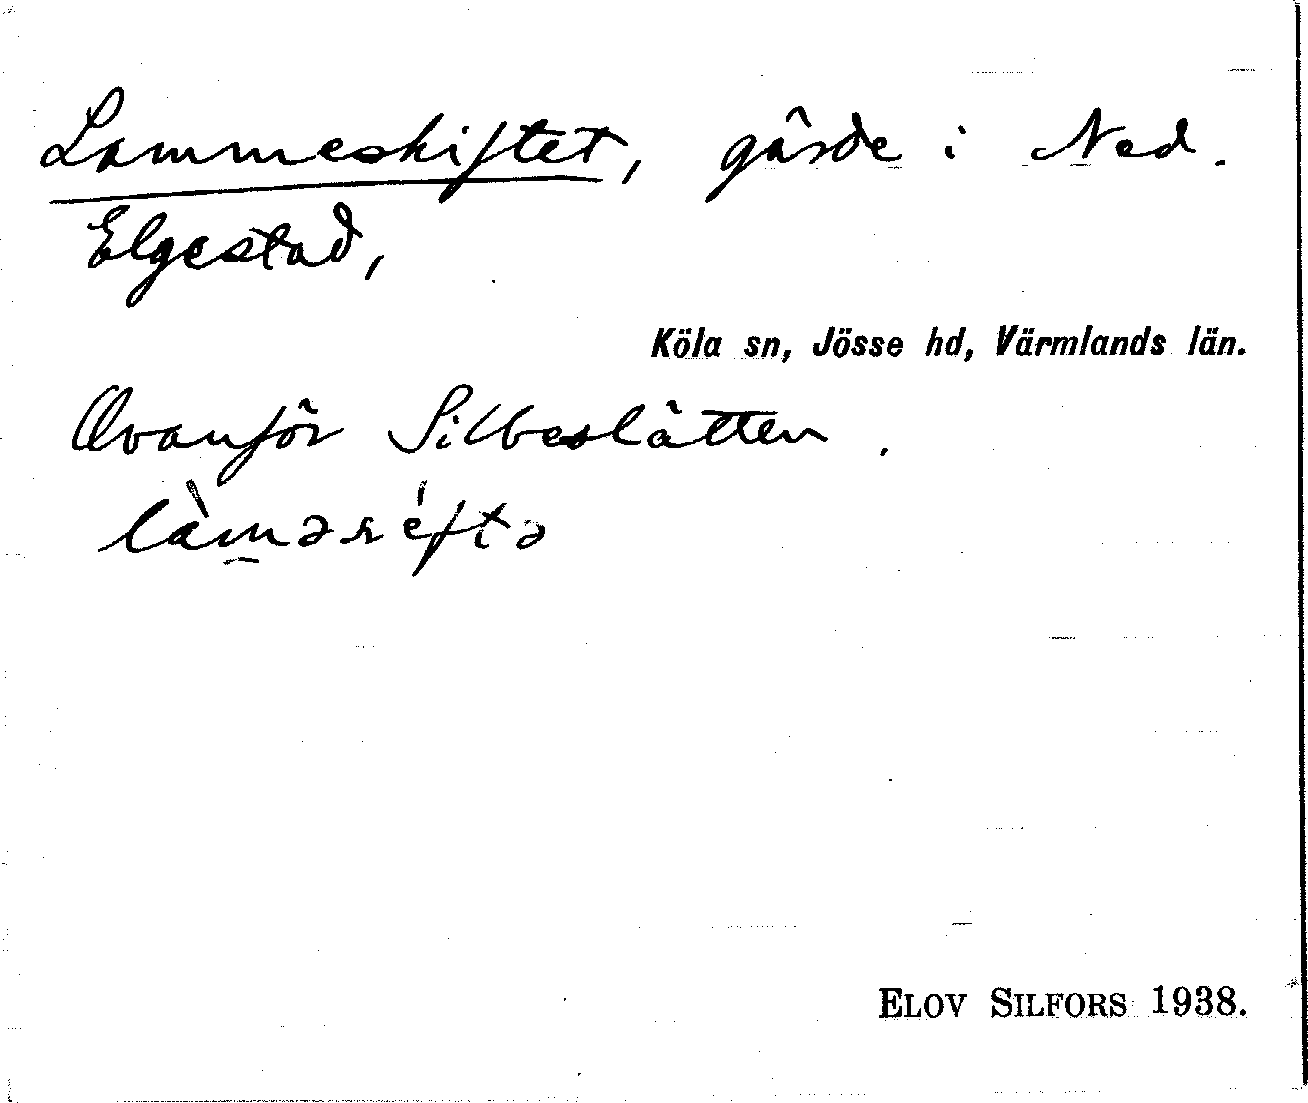 Lammeskiftet, gärde i Ned.
Elgestad,
Köla sn, Jösse hd, Värmlands län.
Ovanför Silbeslätten.
ELOV SILFORS 1938.